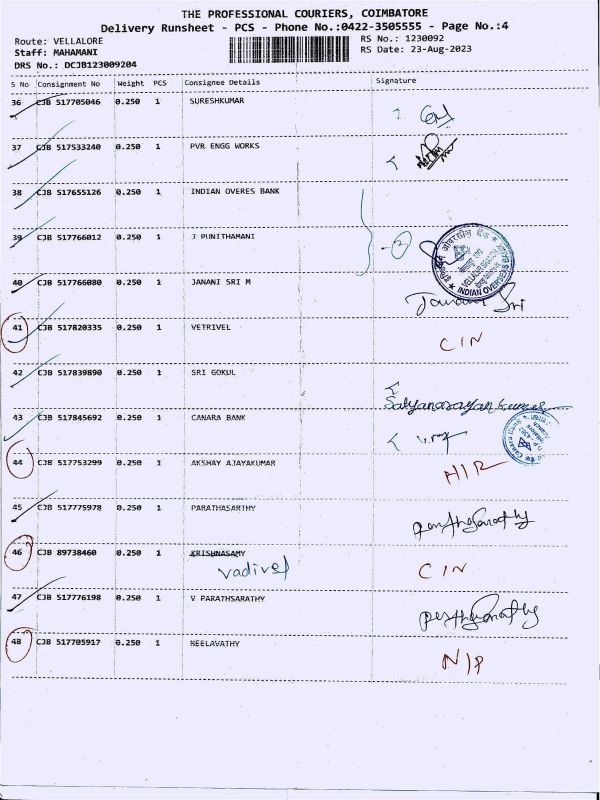 THE PROFESSIONAL COURIERS, COIMBATORE
Delivery Runsheet - PCS - Phone No.:0422-3505555 - Page No.:4
Route: VELLALORE
RS No.: 1230092
Staff: MAHAMANI
RS Date: 23-Aug-2023
DRS No.: DCJB123009204
S No Consignment No Weight PCS Consignee Details Signature
36 CJB 517705046 0.250 1 SURESHKUMAR
37 CJB 517533240 0.250 1 PVR ENGG WORKS
38 CJB 517655126 0.250 1 INDIAN OVERES BANK
39 CJB 517766012 0.250 1 J PUNITHAMANI
INDIAN OVERSEAS BANK
40 CJB 517766080 0.250 1 JANANI SRI M
Janani Sri
41 CJB 517820335 0.250 1 VETRIVEL C/N
42 CJB 517839890 0.250 1 SRI GOKUL
Satyanarayan kumar
43 CJB 517845692 0.250 1 CANARA BANK
Canara Bank
44 CJB 517753299 0.250 1 AKSHAY AJAYAKUMAR
45 CJB 517775978 0.250 1 PARATHASARTHY
46 CJB 89738460 0.250 1 KRISHNASAMY
Vadivel C/N
47 CJB 517776198 0.250 1 V PARATHSARATHY
48 CJB 517705917 0.250 1 NEELAVATHY
N/P